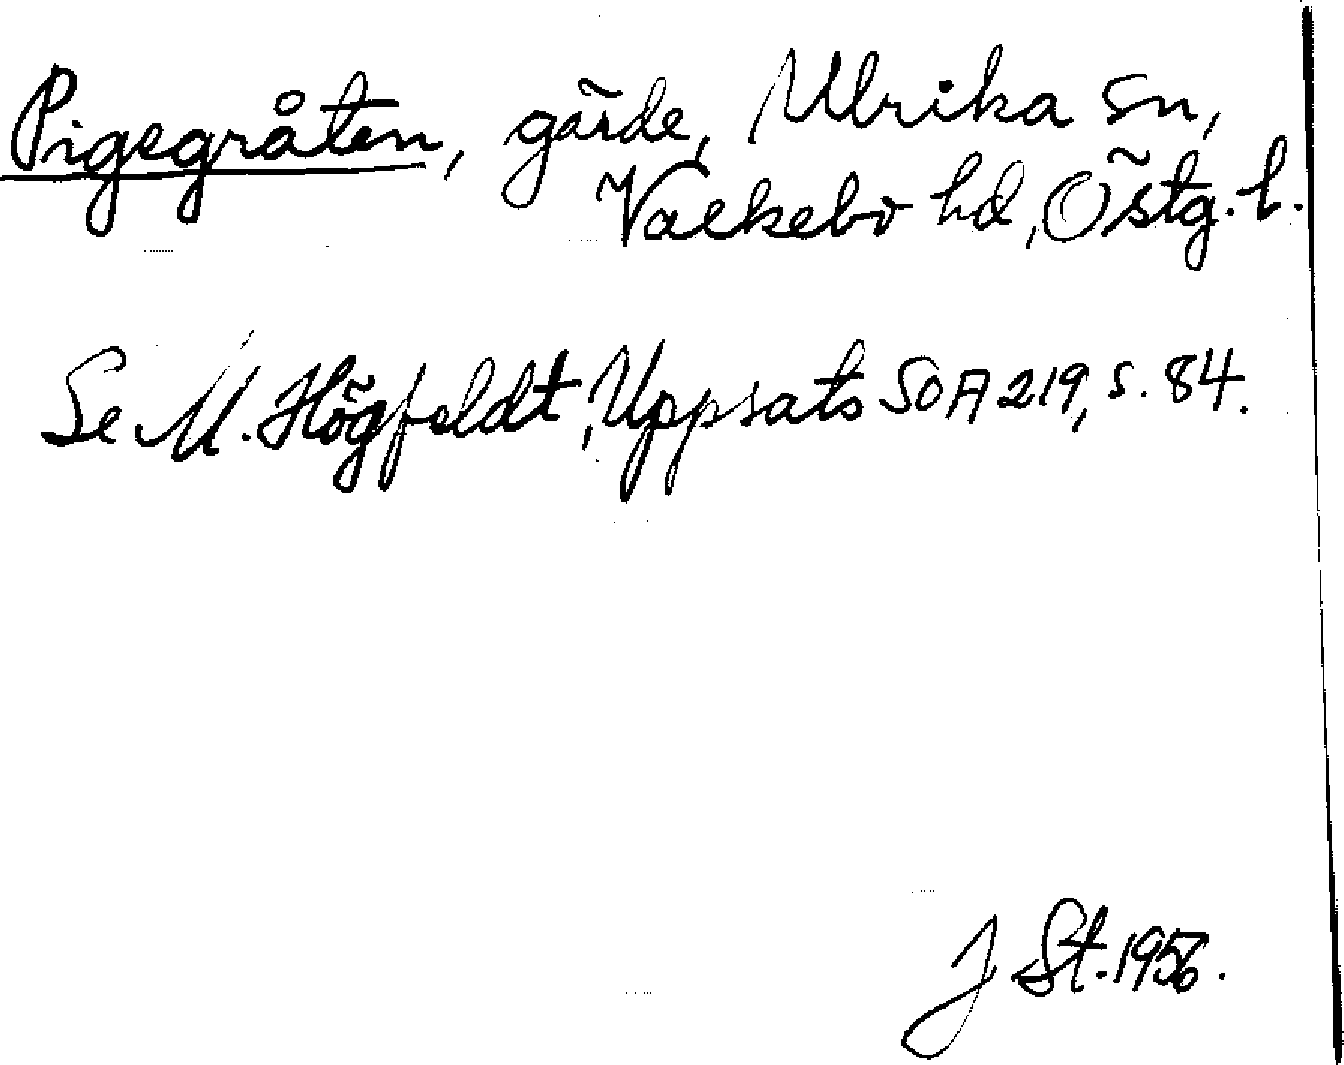 Pigegråten, gärde, Ulrika sn,
Valkebo hd, Östg. l.
Se M. Högfeldt, Uppsats SOA 219, s. 84.
J St. 1956.